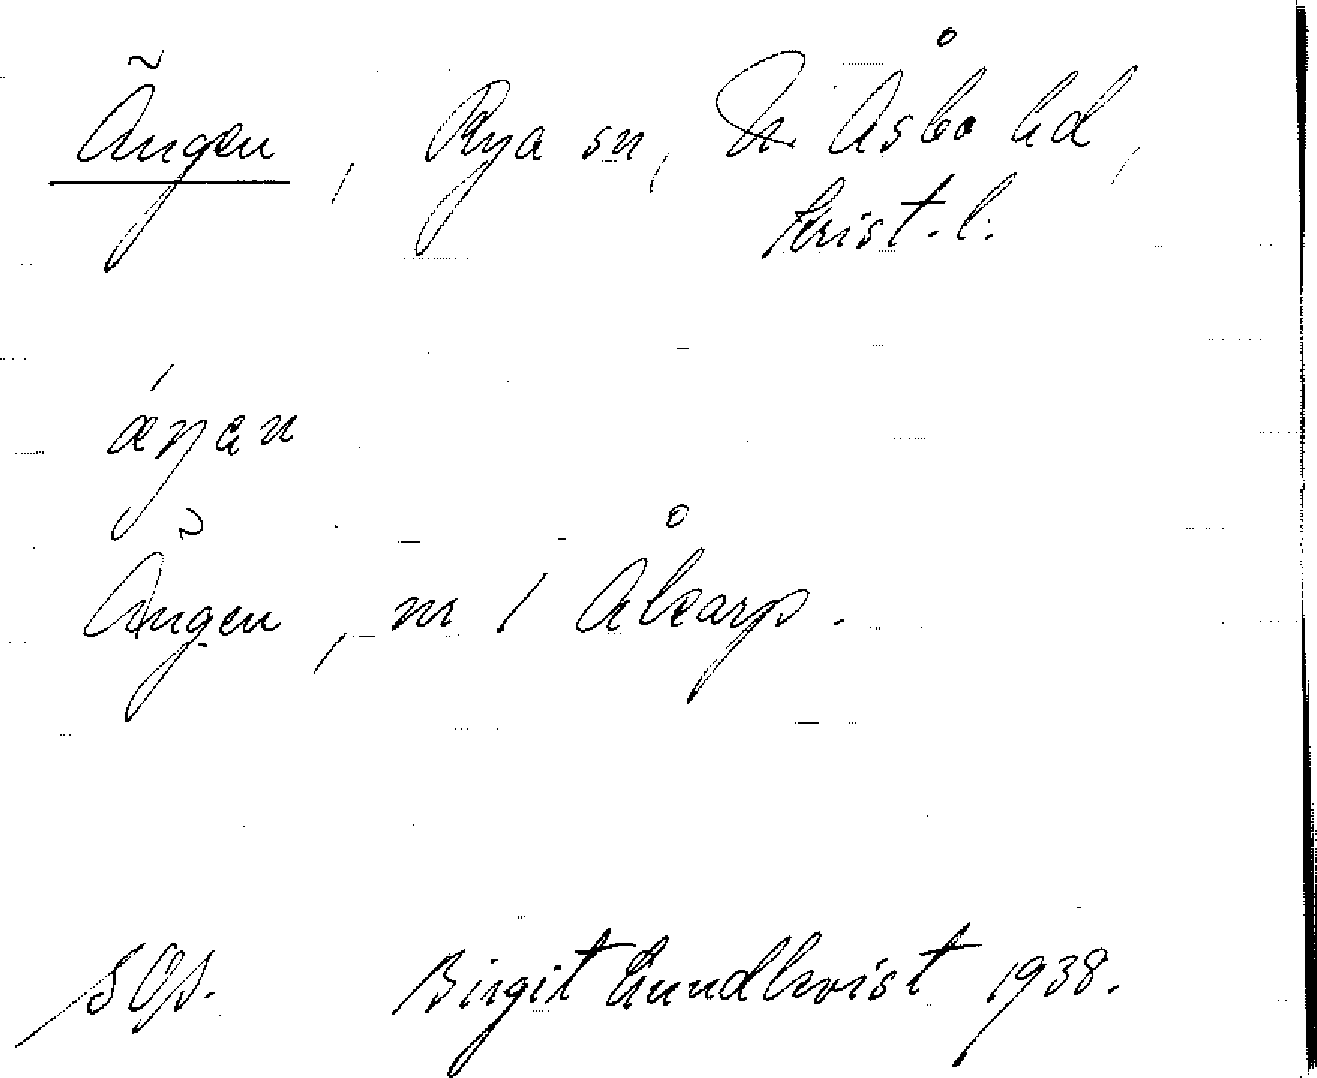 Ängen, Rya sn, N. Åsbo hd,
Krist. l.
ǽŋan
Ängen, nr 1 Ålkarp.
SOA. Birgit Lundkvist 1938.